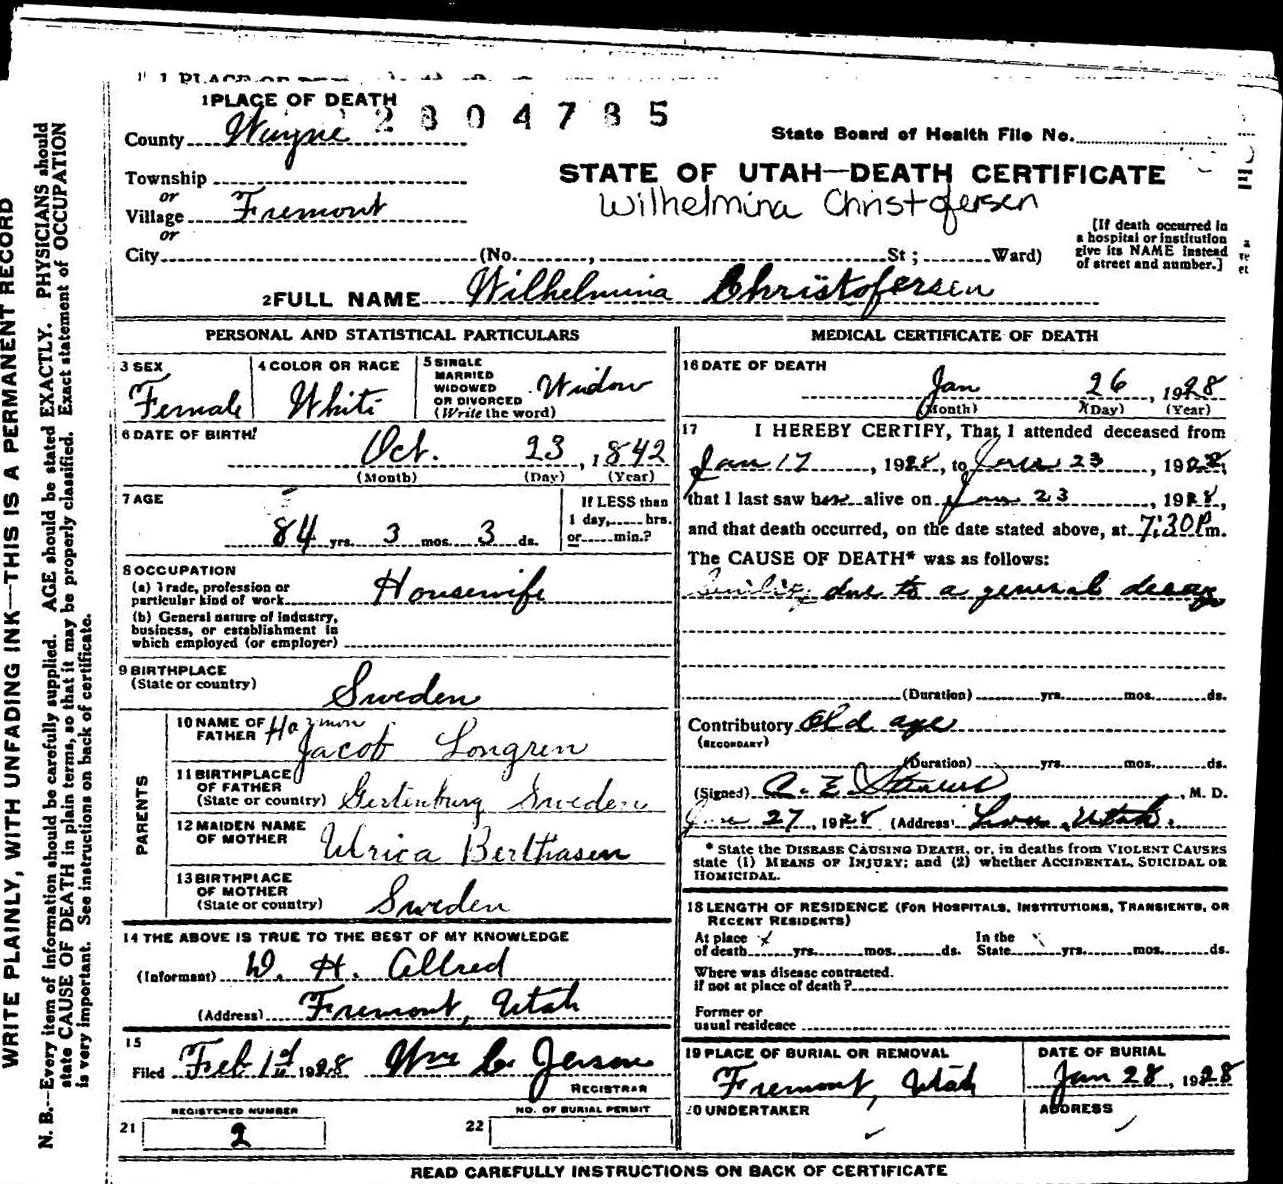 WRITE PLAINLY, WITH UNFADING INK—THIS IS A PERMANENT RECORD
N. B.—Every item of information should be carefully supplied. AGE should be stated EXACTLY. PHYSICIANS should
state CAUSE OF DEATH in plain terms, so that it may be properly classified. Exact statement of OCCUPATION
is very important. See instructions on back of certificate.
1 PLACE OF DEATH
2804785
County Wayne
State Board of Health File No.
Township
or
Village Fremont
or
City (No. , St ; Ward)
STATE OF UTAH—DEATH CERTIFICATE
Wilhelmina Christofersen
[If death occurred in
a hospital or institution
give its NAME instead
of street and number.]
2 FULL NAME Wilhelmina Christofersen
PERSONAL AND STATISTICAL PARTICULARS
3 SEX
Female
4 COLOR OR RACE
White
5 SINGLE
MARRIED
WIDOWED
OR DIVORCED
(Write the word)
Widow
6 DATE OF BIRTH
Oct. 23, 1842
(Month) (Day) (Year)
7 AGE
84 yrs. 3 mos. 3 ds.
If LESS than
1 day, hrs.
or min.?
8 OCCUPATION
(a) Trade, profession or
particular kind of work Housewife
(b) General nature of industry,
business, or establishment in
which employed (or employer)
9 BIRTHPLACE
(State or country)
Sweden
PARENTS
10 NAME OF
FATHER
Jacob Longren
11 BIRTHPLACE
OF FATHER
(State or country) Sweden
12 MAIDEN NAME
OF MOTHER
Ulrica Berthasen
13 BIRTHPLACE
OF MOTHER
(State or country)
Sweden
14 THE ABOVE IS TRUE TO THE BEST OF MY KNOWLEDGE
(Informant) W. H. Allred
(Address) Fremont, Utah
15
Filed Feb 1st 1928 Wm C. Jenson
REGISTRAR
REGISTERED NUMBER
21 2
NO. OF BURIAL PERMIT
22
MEDICAL CERTIFICATE OF DEATH
16 DATE OF DEATH
Jan 26, 1928
(Month) (Day) (Year)
17 I HEREBY CERTIFY, That I attended deceased from
Jan 17, 1928, to Jan 23, 1928,
that I last saw her alive on Jan 23, 1928,
and that death occurred, on the date stated above, at 7:30 P m.
The CAUSE OF DEATH* was as follows:
Senility due to a general decay
(Duration) yrs. mos. ds.
Contributory Old age
(SECONDARY)
(Duration) yrs. mos. ds.
(Signed) A. E. , M. D.
Jan 27, 1928 (Address) Loa, Utah.
* State the DISEASE CAUSING DEATH, or, in deaths from VIOLENT CAUSES
state (1) MEANS OF INJURY; and (2) whether ACCIDENTAL, SUICIDAL OR
HOMICIDAL.
18 LENGTH OF RESIDENCE (FOR HOSPITALS, INSTITUTIONS, TRANSIENTS, OR
RECENT RESIDENTS)
At place In the
of death yrs. mos. ds. State yrs. mos. ds.
Where was disease contracted.
if not at place of death?
Former or
usual residence
19 PLACE OF BURIAL OR REMOVAL
Fremont, Utah
DATE OF BURIAL
Jan 28, 1928
20 UNDERTAKER
ADDRESS
READ CAREFULLY INSTRUCTIONS ON BACK OF CERTIFICATE